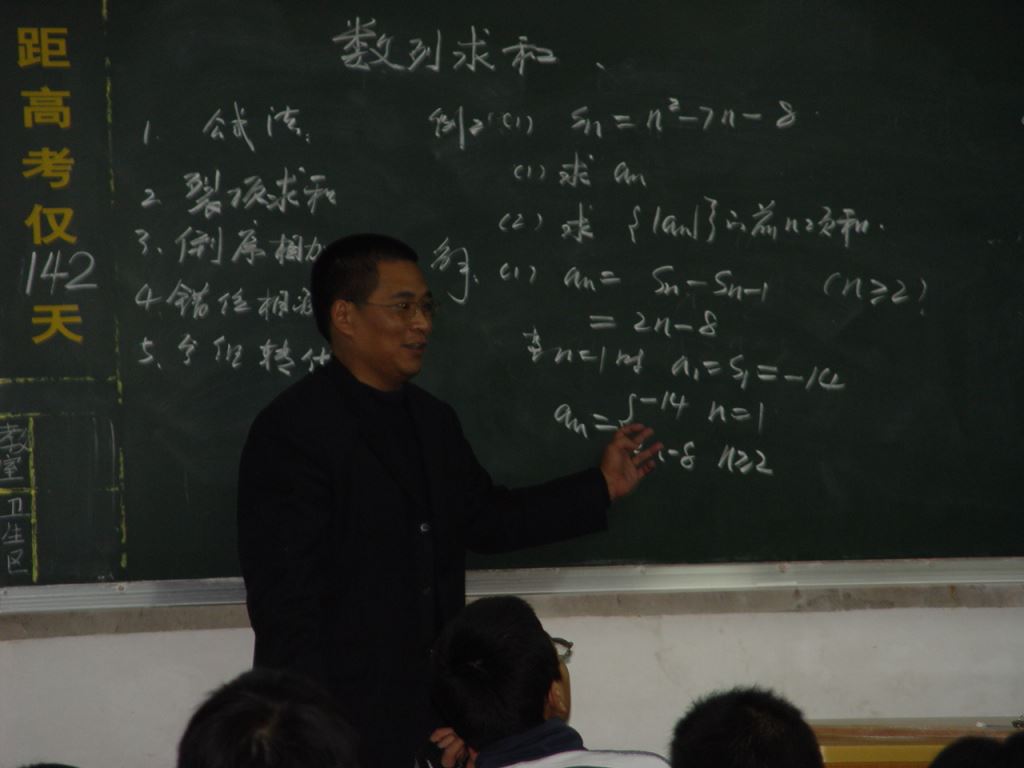 距高考仅142天
教室卫生区
数列求和
1. 公式法
2. 裂项求和
3. 倒序相加
4. 错位相减
5. 转化
例2 (1) Sn=n²-7n-8
(1) 求 an
(2) 求 {|an|}的前n项和.
解: (1) an= Sn-Sn-1 (n≥2)
= 2n-8
当n=1时 a₁=S₁=-14
an={-14 n=1
-8 n≥2